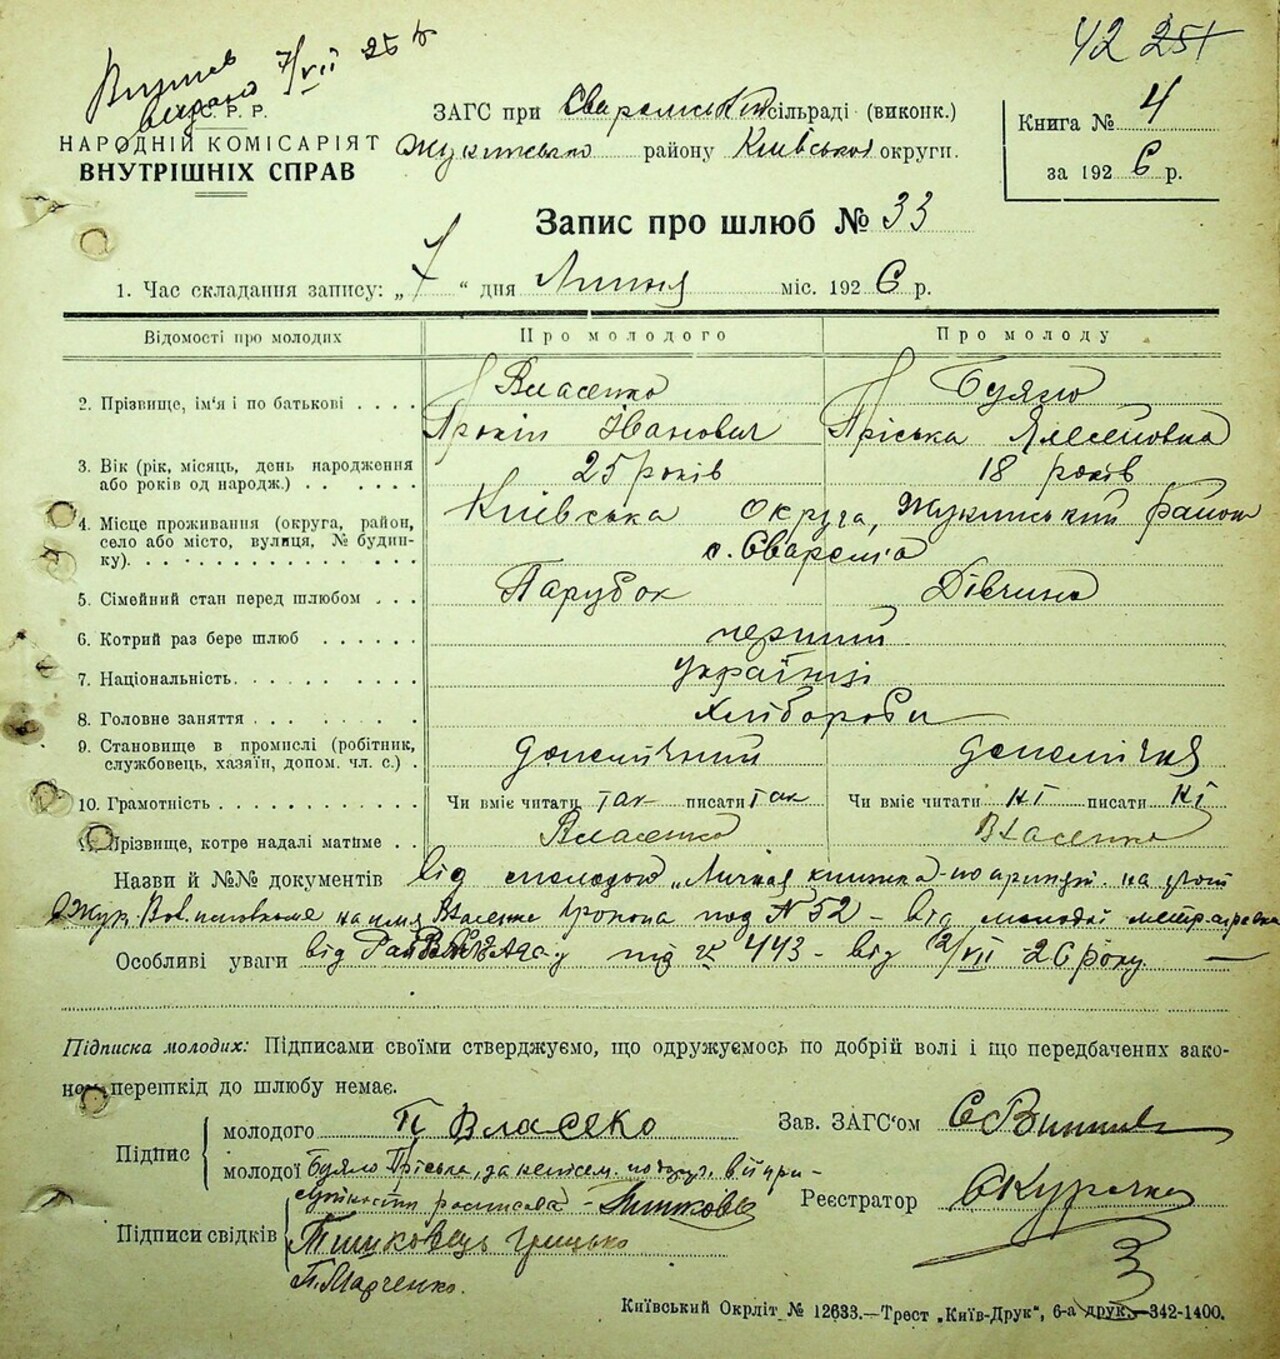 42 251
7/VII 25 р
С. Р. Р.
НАРОДНІЙ КОМІСАРІЯТ
ВНУТРІШНІХ СПРАВ
ЗАГС при сільраді (виконк.)
району Київської округи.
Книга № 4
за 1926 р.
Запис про шлюб № 33
1. Час складання запису: „7“ дня Липня міс. 1926 р.
Відомості про молодих
Про молодого
Про молоду
2. Прізвище, ім'я і по батькові . . . .
Власенко
Прокіп Іванович
Буяло
Пріська
3. Вік (рік, місяць, день народження
або років од народж.) . . . . . . .
25 років
18 років
4. Місце проживання (округа, район,
село або місто, вулиця, № будин-
ку).
Київська округа, Жукинський район
с. Сваромя
5. Сімейний стан перед шлюбом . . .
Парубок
Дівчина
6. Котрий раз бере шлюб . . . . . .
перший
7. Національність.
українці
8. Головне заняття
Хлібороби
9. Становище в промислі (робітник,
службовець, хазяїн, допом. чл. с.) .
допомічний
допомічна
10. Грамотність
Чи вміє читати так писати так
Чи вміє читати ні писати ні
Прізвище, котре надалі матиме . .
Власенко
Власенко
Назви й №№ документів від молодого „Личная книжка
на имя Власенко Прокопа под № 52 – від молодої
Особливі уваги від під № 443 – від 2/VII 26 року. —
Підписка молодих: Підписами своїми стверджуємо, що одружуємось по добрій волі і що передбачених зако-
ном перешкід до шлюбу немає.
Підпис
молодого П Власеко
молодої Буяло Пріська, за
Підписи свідків
Тишковець Грицько
П. Марченко.
Зав. ЗАГС'ом
Реєстратор
Київський Окрліт № 12633.—Трест „Київ-Друк“, 6-а друк.—342-1400.